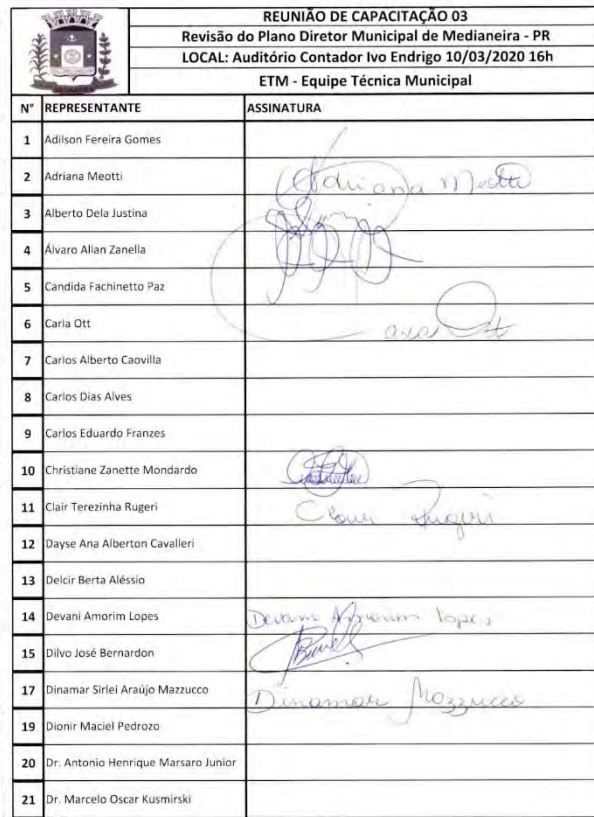 REUNIÃO DE CAPACITAÇÃO 03
Revisão do Plano Diretor Municipal de Medianeira - PR
LOCAL: Auditório Contador Ivo Endrigo 10/03/2020 16h
ETM - Equipe Técnica Municipal
N° REPRESENTANTE ASSINATURA
1 Adilson Fereira Gomes
2 Adriana Meotti Adriana Meotti
3 Alberto Dela Justina
4 Álvaro Allan Zanella
5 Candida Fachinetto Paz
6 Carla Ott Carla Ott
7 Carlos Alberto Caovilla
8 Carlos Dias Alves
9 Carlos Eduardo Franzes
10 Christiane Zanette Mondardo
11 Clair Terezinha Rugeri Clair Rugeri
12 Dayse Ana Alberton Cavalleri
13 Delcir Berta Aléssio
14 Devani Amorim Lopes Devani Amorim Lopes
15 Dilvo José Bernardon
17 Dinamar Sirlei Araújo Mazzucco Dinamar Mazzucco
19 Dionir Maciel Pedrozo
20 Dr. Antonio Henrique Marsaro Junior
21 Dr. Marcelo Oscar Kusmirski